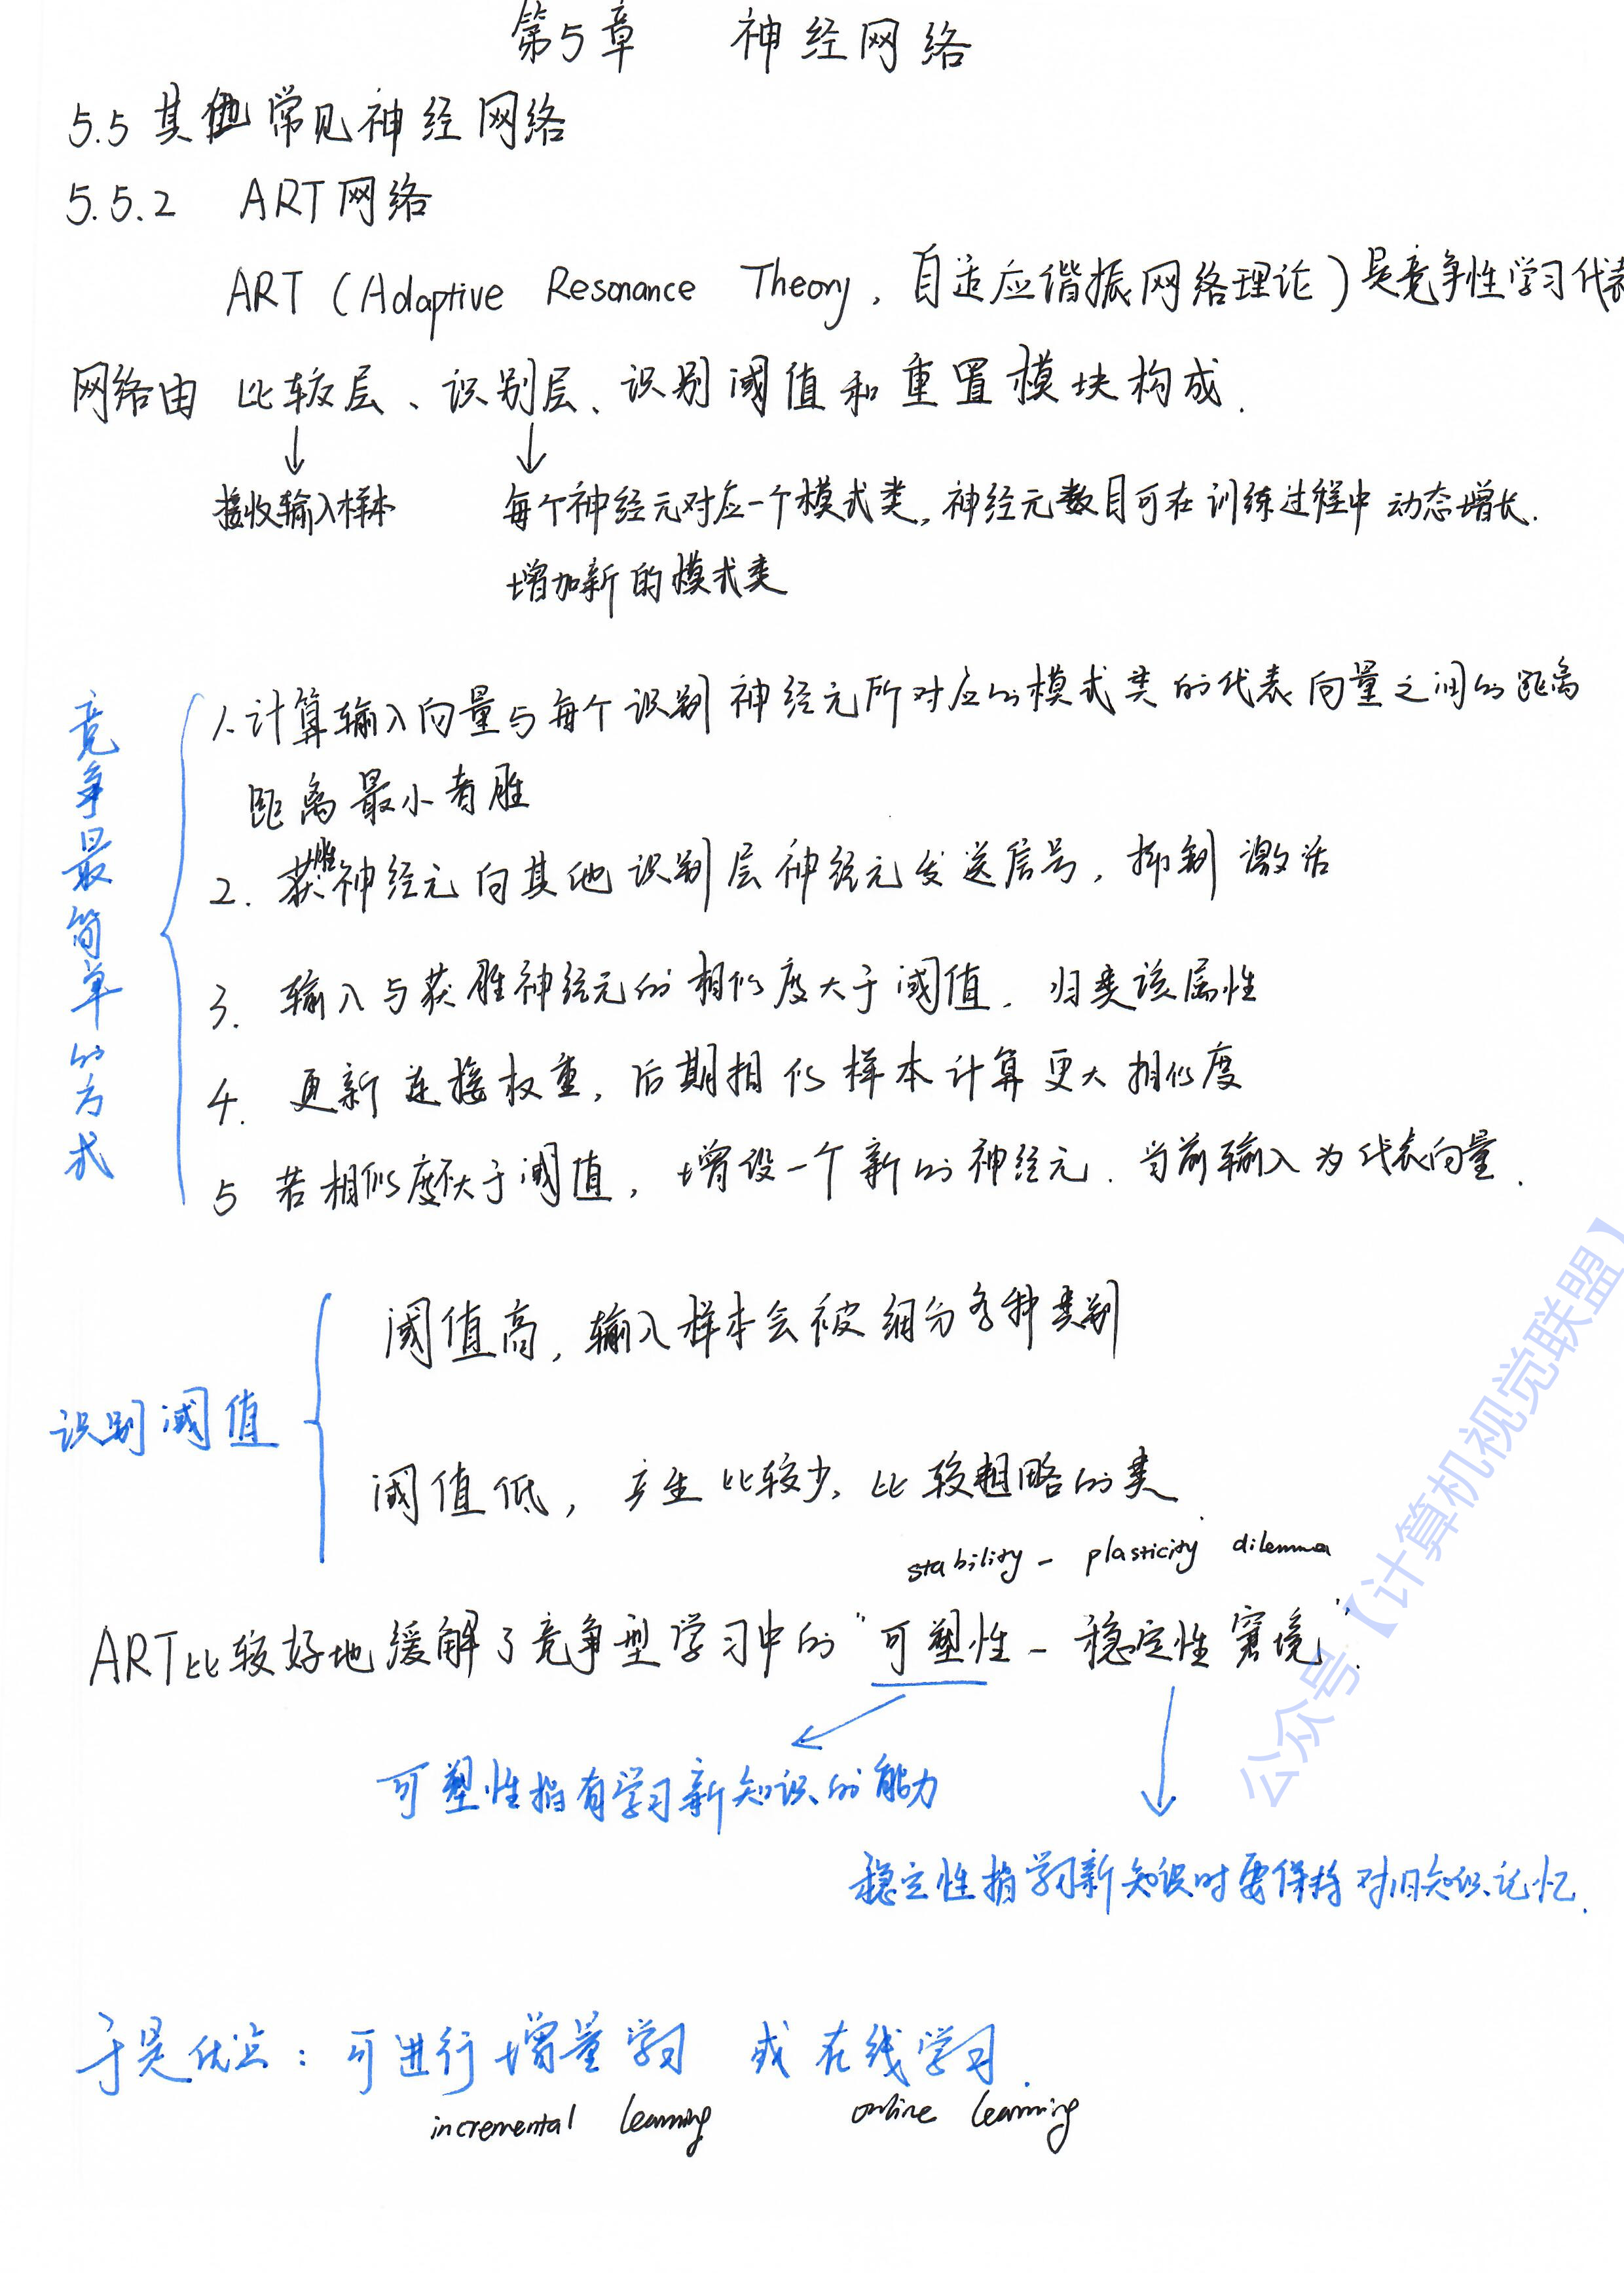 第5章 神经网络
5.5 其他常见神经网络
5.5.2 ART网络
ART (Adaptive Resonance Theory, 自适应谐振网络理论) 是竞争性学习代表
网络由 比较层、识别层、识别阈值和重置模块构成.
接收输入样本
每个神经元对应一个模式类, 神经元数目可在训练过程中 动态增长.
增加新的模式类
竞争最简单的方式
1. 计算输入向量与每个识别神经元所对应的模式类的代表向量之间的距离
距离最小者胜
2. 获胜神经元向其他识别层神经元发送信号, 抑制激活
3. 输入与获胜神经元的相似度大于阈值. 归类该属性
4. 更新连接权重, 后期相似样本计算更大相似度
5 若相似度不大于阈值, 增设一个新的神经元. 当前输入为代表向量.
识别阈值
阈值高, 输入样本会被细分各种类别
阈值低, 产生比较少、比较粗略的类
stability - plasticity dilemma
ART比较好地缓解了竞争型学习中的"可塑性-稳定性窘境".
可塑性指有学习新知识的能力
稳定性指学习新知识时要保持对旧知识记忆.
于是优点: 可进行增量学习 或在线学习.
incremental learning online learning
公众号【计算机视觉联盟】